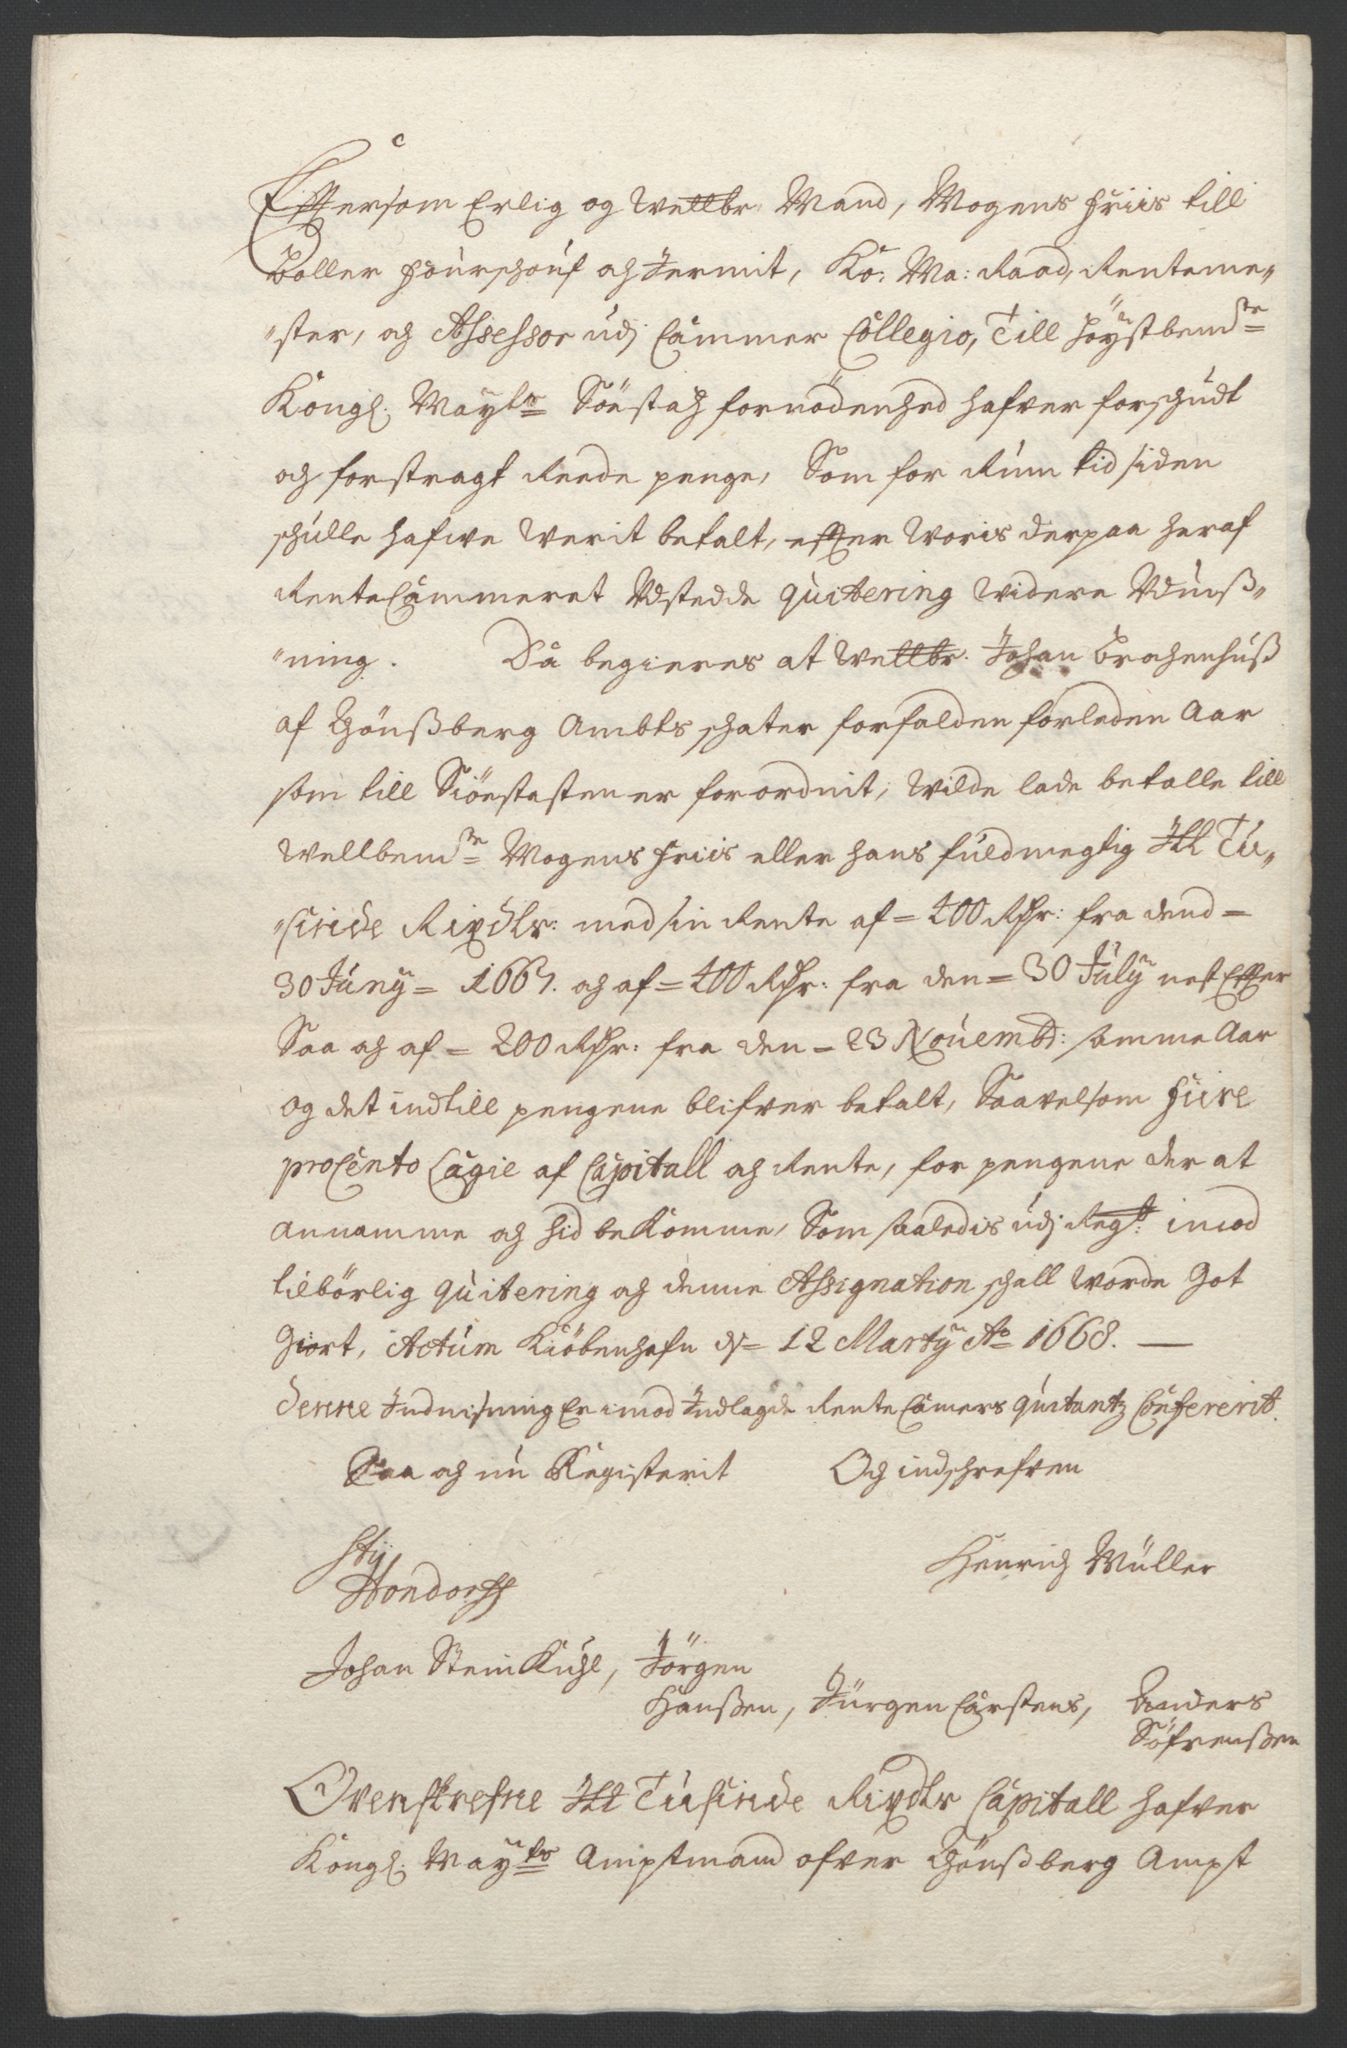 Effersom Erlig og Wellbr Mand, Mogens Friis till
Boller Fourschouf och Jermit, Ko: Ma: Raad, Renteme„
„ster, och Assessor udj Cammer Collegio, Till höystbemte
Kongl. Maytz Söestatz fornödenhed hafver forschudt
och forstragt Reede penge, Som for Rum tid siden
schulle hafve Verit betalt, effter Voris derpaa heraf
RenteCammeret Udstedde quitering Videre Udvuiß„
„ning. Da begieres at Wellbr. Johan Brochenhuß
af Thönßberg Ambts schater forfalden forleden Aar
som till Siöestaten er forordnit, Wilde lade betalle till
Wellbemte Mogens Friis eller hans fuldmegtig Itt Tu„
„sinde Rixdlr: med sin Rente af = 400 Rdr: fra dend =
30 Juny = 1667. och af = 400 Rdr: fra den = 30 July nest Effter
Saa och af = 200 Rdr: fra den = 23 Nouembr: samme Aar
og det indtill pengene blifver betalt, Saavelsom Fiire
proCento Lagie af Capitall och Rente, for pengene der at
annamme och hid bekomme, Som saaledis udj Regsk: imod
tilbörlig quitering och denne Assignation schall Worde Got
Giort, Actum Kiöbenhafn d = 12 Marty Ao 1668. —
Denne Indvisning Er imod Indlagde Rente Camers quitantz Confererit.
Saa och nu Registerit Och indschrefven
Henrich Müller
Hondorff
Johan SteinKuhl, Jörgen
Hanßen, Jürgen Carstens, Anders
Söfrenßen
Ovenskrefne Itt Tusinde Rixdlr Capitall hafver
Kongl. Maytz Amptmand ofver Thönßberg Ampt